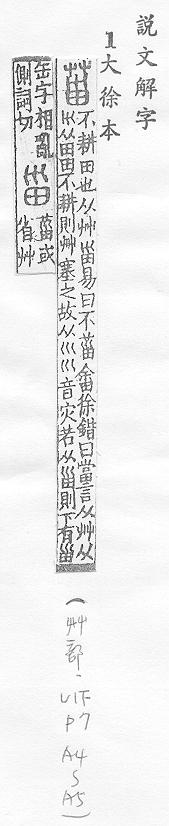 説文解字
1大徐本
菑 不耕田也从艸甾易曰不菑畬徐鍇曰當言从艸从
巛从田田不耕則艸塞之故从巛巛音灾若从甾則下有甾
缶字相亂 甾 菑或
側詞切 省艸
(艸部·U1下
P7
A4
S
A5)